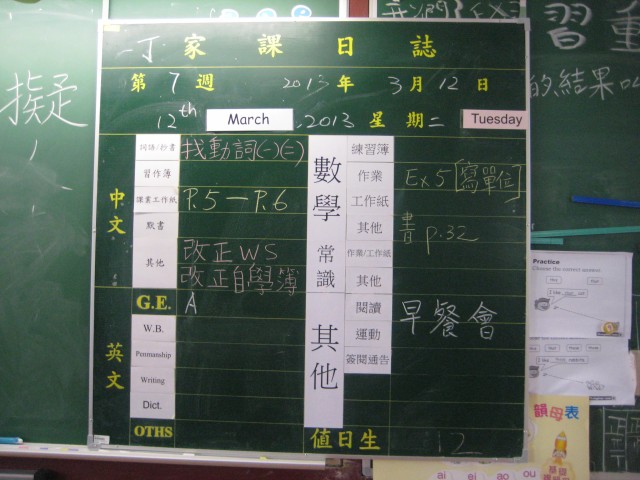 一丁 家課日誌
第 7 週 2013 年 3 月 12 日
12th March, 2013 星期二 Tuesday
中文
詞語/抄書 找動詞(一)(二)
習作簿
課業工作紙 P.5 — P.6
默書
其他 改正WS
改正自學簿
英文
G.E. A
W.B.
Penmanship
Writing
Dict.
OTHS
數學
練習簿
作業 Ex 5 [寫單位]
工作紙
其他 書 p.32
常識
作業/工作紙
其他
其他
閱讀 早餐會
運動
簽閱通告
值日生 12
擬
習重
的結果
Practice
Choose the correct answer.
韻母表
ai ei ao ou